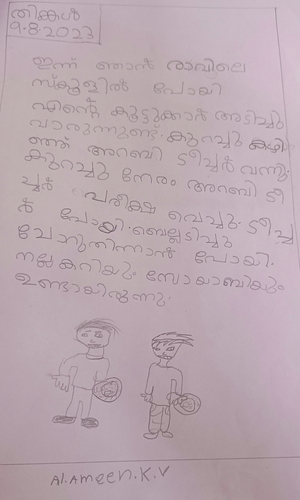 തിങ്കൾ
9.8.2023
ഇന്ന് ഞാൻ രാവിലെ
സ്കൂളിൽ പോയി
എന്റെ കൂട്ടുക്കാർ അടിച്ചു
വാരുന്നുണ്ട്. കുറച്ചു കഴി
ഞ്ഞ് അറബി ടീച്ചർ വന്നു.
കുറച്ചു നേരം അറബി ടീ
ച്ചർ പരീക്ഷ വെച്ചു. ടീച്ച
ർ പോയി. ബെല്ലടിച്ചു
ചോറുതിന്നാൻ പോയി.
നല്ല കറിയും സോയാബിയും
ഉണ്ടായിരുന്നു.
Al.Ameen.K.V